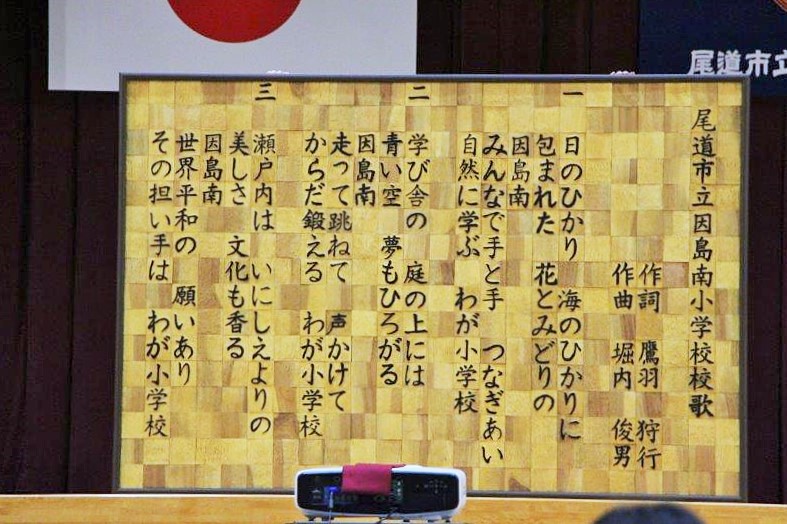 尾道市立
尾道市立因島南小学校校歌
作詞 鷹羽 狩行
作曲 堀内 俊男
一
日のひかり 海のひかりに
包まれた 花とみどりの
因島南
みんなで手と手 つなぎあい
自然に学ぶ わが小学校
二
学び舎の 庭の上には
青い空 夢もひろがる
因島南
走って跳ねて 声かけて
からだ鍛える わが小学校
三
瀬戸内は いにしえよりの
美しさ 文化も香る
因島南
世界平和の 願いあり
その担い手は わが小学校